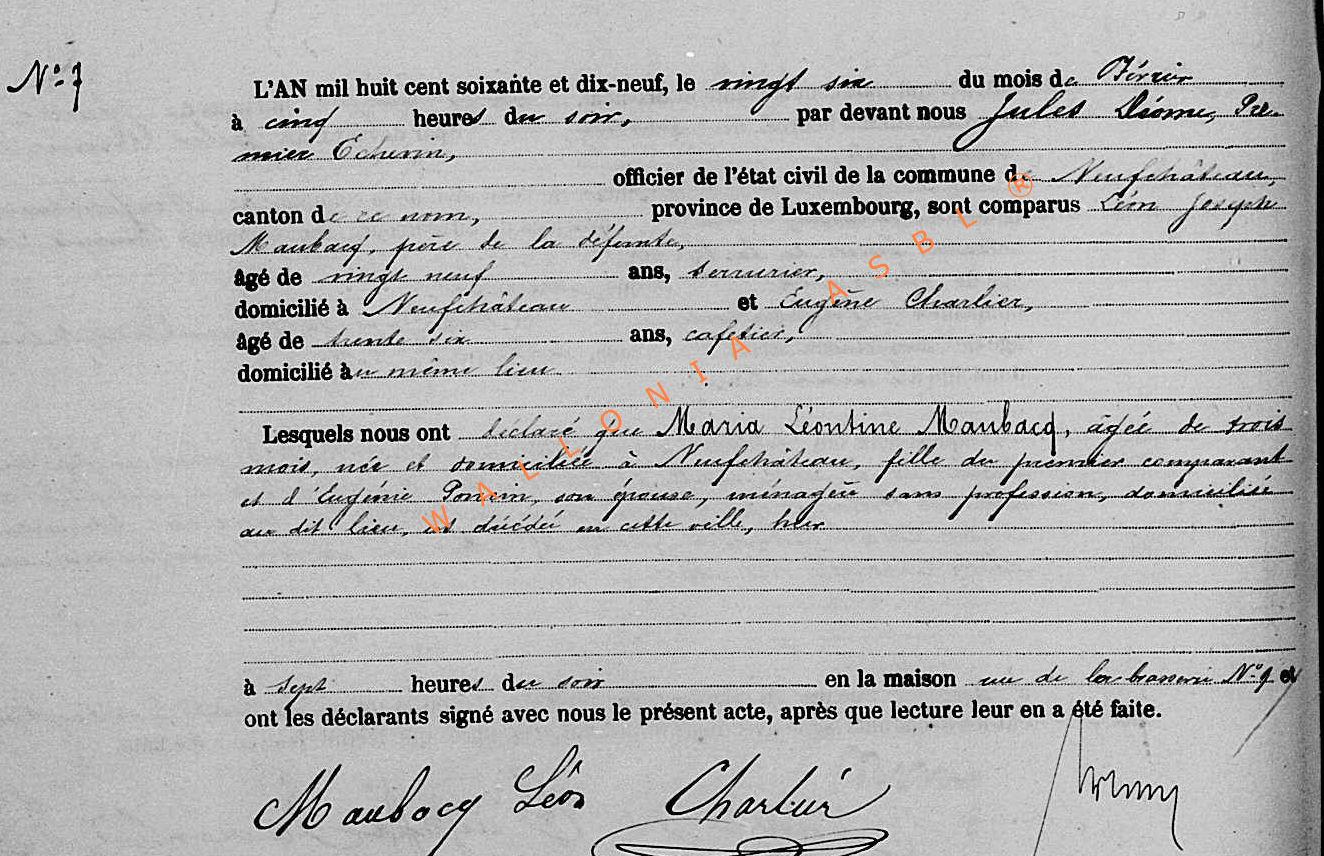 N° 7
L'AN mil huit cent soixante et dix-neuf, le vingt six du mois de Février
à cinq heures du soir, par devant nous Jules Diôme, Pre-
mier Echevin,
officier de l'état civil de la commune de Neufchâteau,
canton de ce nom, province de Luxembourg, sont comparus Léon Joseph
Maubacq, père de la défunte,
âgé de vingt neuf ans, serrurier,
domicilié à Neufchâteau et Eugène Charlier,
âgé de trente six ans, cafetier,
domicilié au même lieu
Lesquels nous ont déclaré que Maria Léontine Maubacq, âgée de trois
mois, née et domiciliée à Neufchâteau, fille du premier comparant
et d'Eugénie Poncin, son épouse, ménagère sans profession, domiciliée
au dit lieu, est décédée en cette ville, hier
à sept heures du soir en la maison rue de la brasserie N° 9 et
ont les déclarants signé avec nous le présent acte, après que lecture leur en a été faite.
Maubacq Léon Charlier
WALLONIA ASBL ®